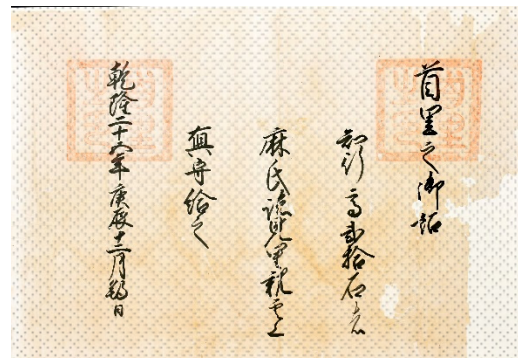 首里之御詔
知行高弐拾石者
麻氏諸見里親雲上
真舟給之
乾隆二十五年庚辰十二月日